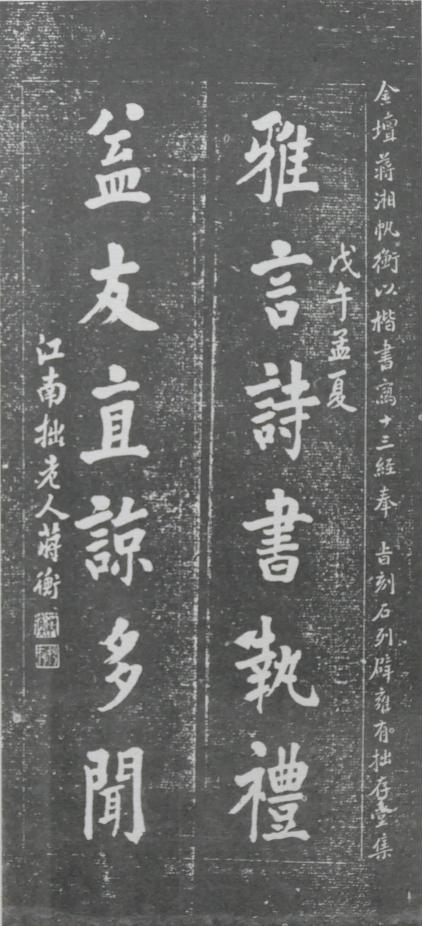 金壇蔣湘帆衡以楷書寫十三經奉旨刻石列辟雍有拙存堂集
戊午孟夏
雅言詩書執禮
益友直諒多聞
江南拙老人蔣衡